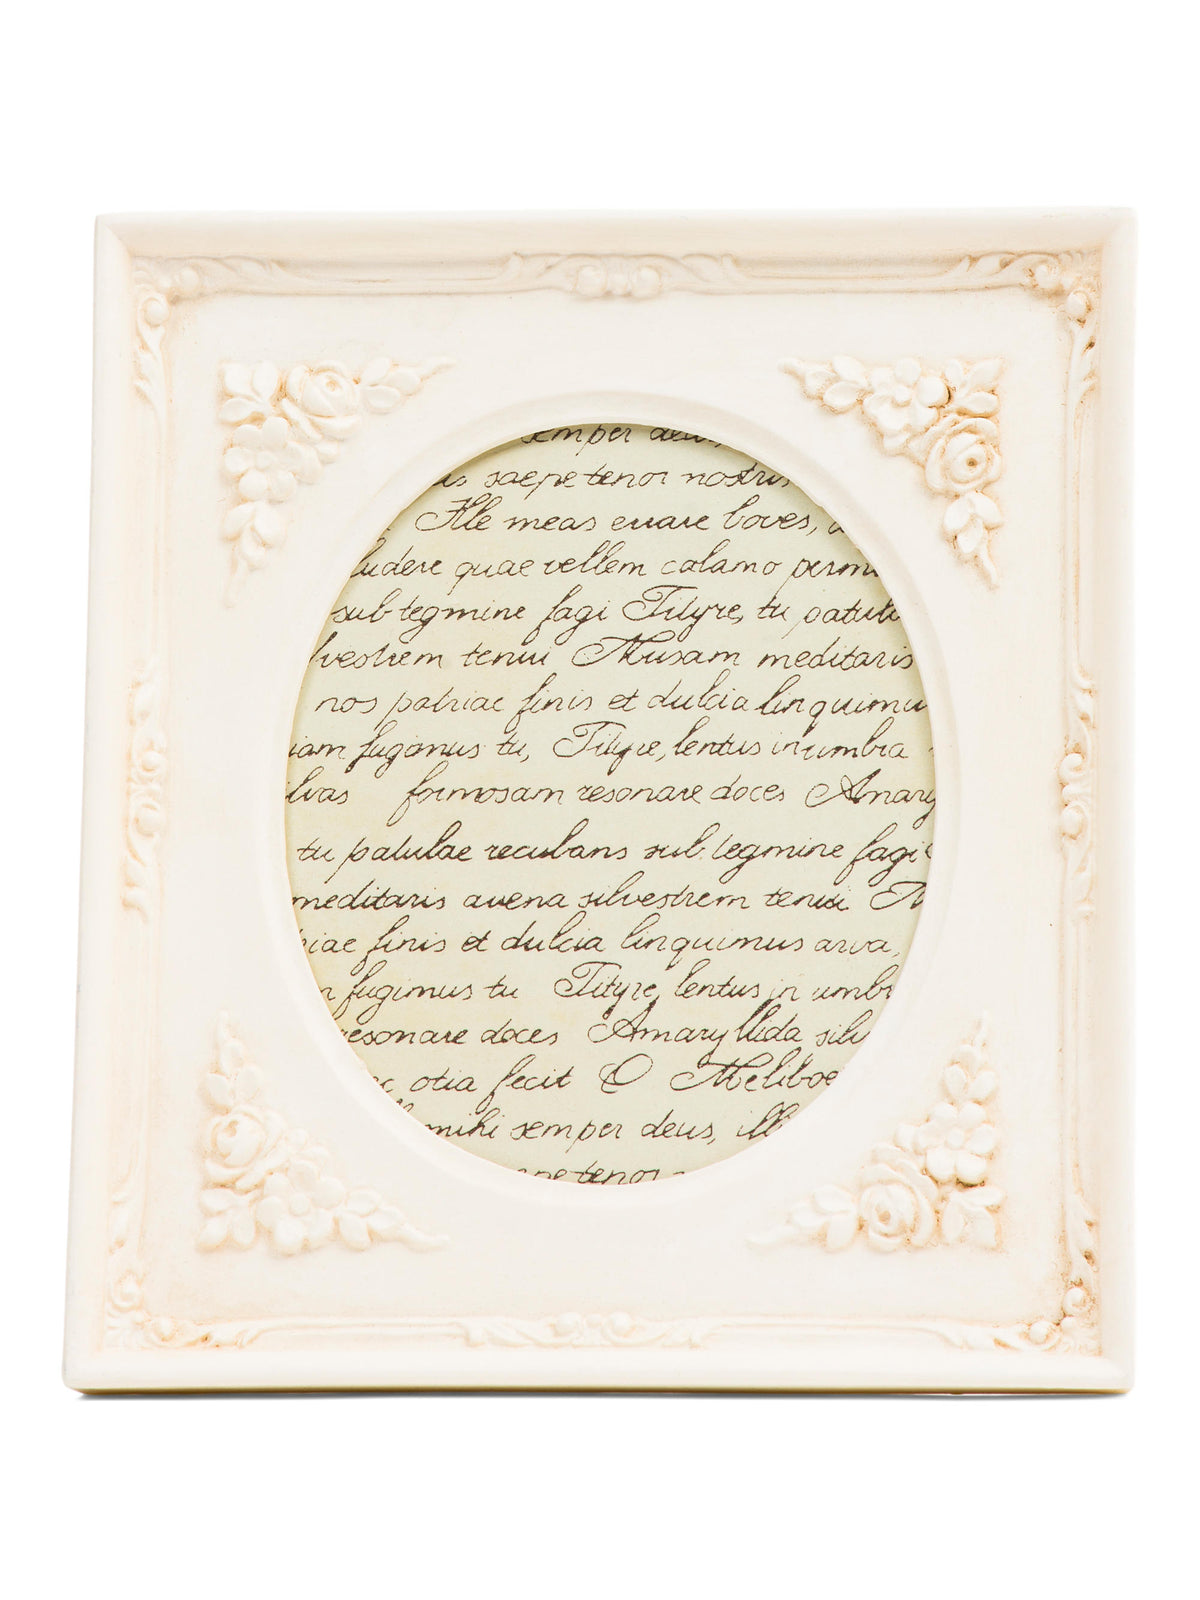 semper deus,
saepe tenor nostris
Ille meas errare boves,
ludere quae vellem calamo permi
sub tegmine fagi Tityre, tu patul
lvestrem tenui Musam meditaris
nos patriae finis et dulcia linquimu
iam fugimus tu, Tityre, lentus in umbra
lvas formosam resonare doces Amary
tu patulae recubans sub tegmine fagi
meditaris avena silvestrem tenui M
riae finis et dulcia linquimus arva,
m fugimus tu Tityre, lentus in umbr
resonare doces Amaryllida silv
ec otia fecit O Meliboe
mihi semper deus, ill
pe tenor